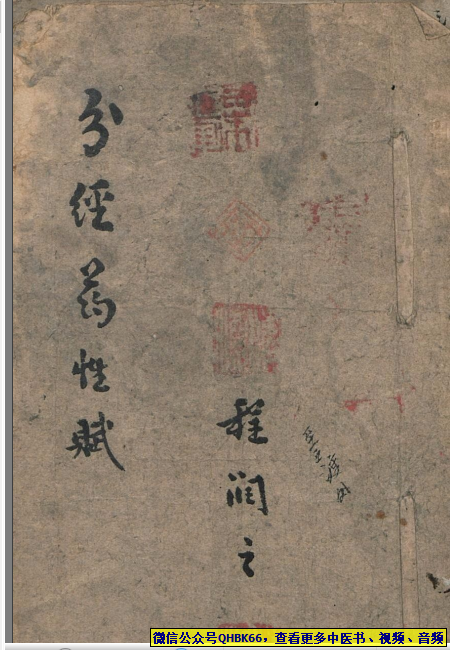 分经药性赋
程润之
微信公众号QHBK66，查看更多中医书、视频、音频